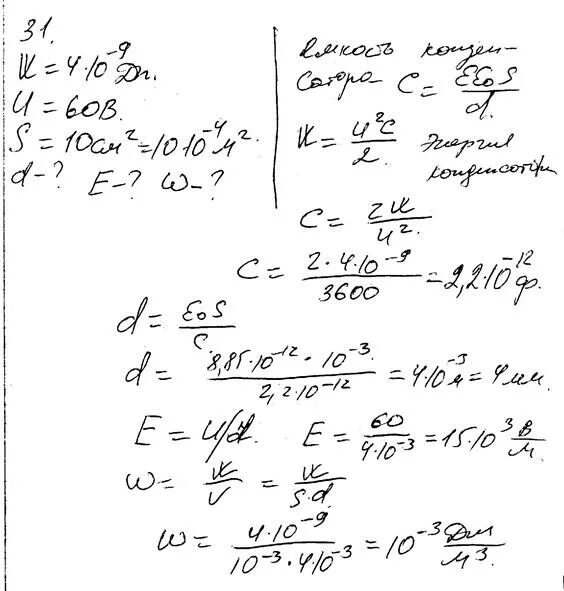 31.
W = 4·10⁻⁹ Дж.
U = 60В.
S = 10см² = 10·10⁻⁴ м².
d-? E-? w-?
Ёмкость конден-
сатора C = εε₀S/d.
W = U²C/2. Энергия
конденсатора
C = 2W/U².
C = 2·4·10⁻⁹/3600 = 2,2·10⁻¹² ф.
d = ε₀S/C.
d = 8,85·10⁻¹²·10⁻³/2,2·10⁻¹² = 4·10⁻³ м = 4 мм.
E = U/d. E = 60/4·10⁻³ = 15·10³ В/м.
w = W/V = W/S·d.
w = 4·10⁻⁹/10⁻³·4·10⁻³ = 10⁻³ Дж/м³.